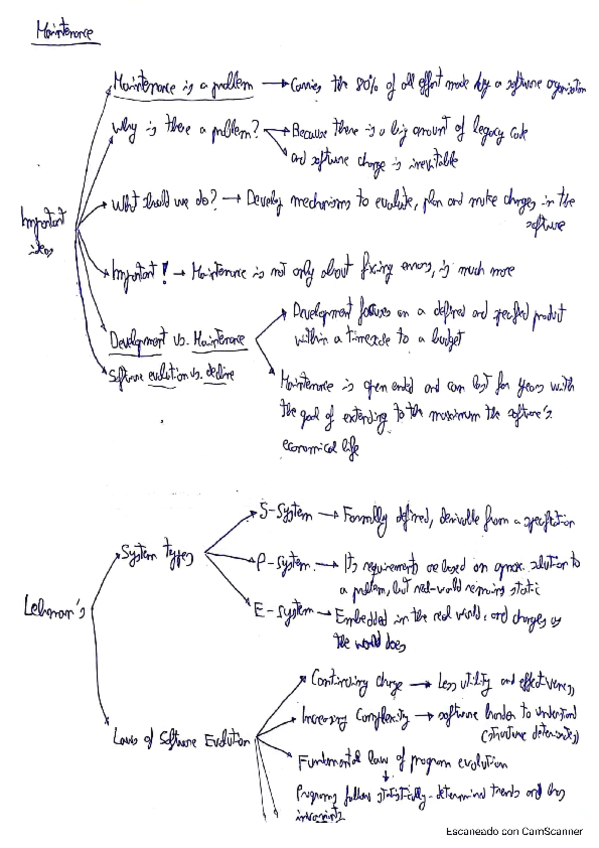 Maintenance
Maintenance is a problem → Carries the 80% of all effort made by a software organisation
Why is there a problem? → Because there is a big amount of legacy code
and software change is inevitable
What should we do? → Develop mechanisms to evaluate, plan and make changes in the
software
Important ideas
Important! → Maintenance is not only about fixing errors, is much more
Development vs. Maintenance
Development focuses on a defined and specified product
within a timescale to a budget
Software evolution vs. decline
Maintenance is open ended and can last for years with
the goal of extending to the maximum the software's
economical life
Lehman's
System types
S-System → Formally defined, derivable from a specification
P-system → Its requirements are based on aprox. solution to
a problem, but real-world remains static
E-System → Embedded in the real world and changes as
the world does
Laws of Software Evolution
Continuing change → Less utility and effectiveness
Increasing Complexity → software harder to understand
(structure deteriorates)
Fundamental law of program evolution
Programs follow statistically-determined trends and has
invariants
Escaneado con CamScanner